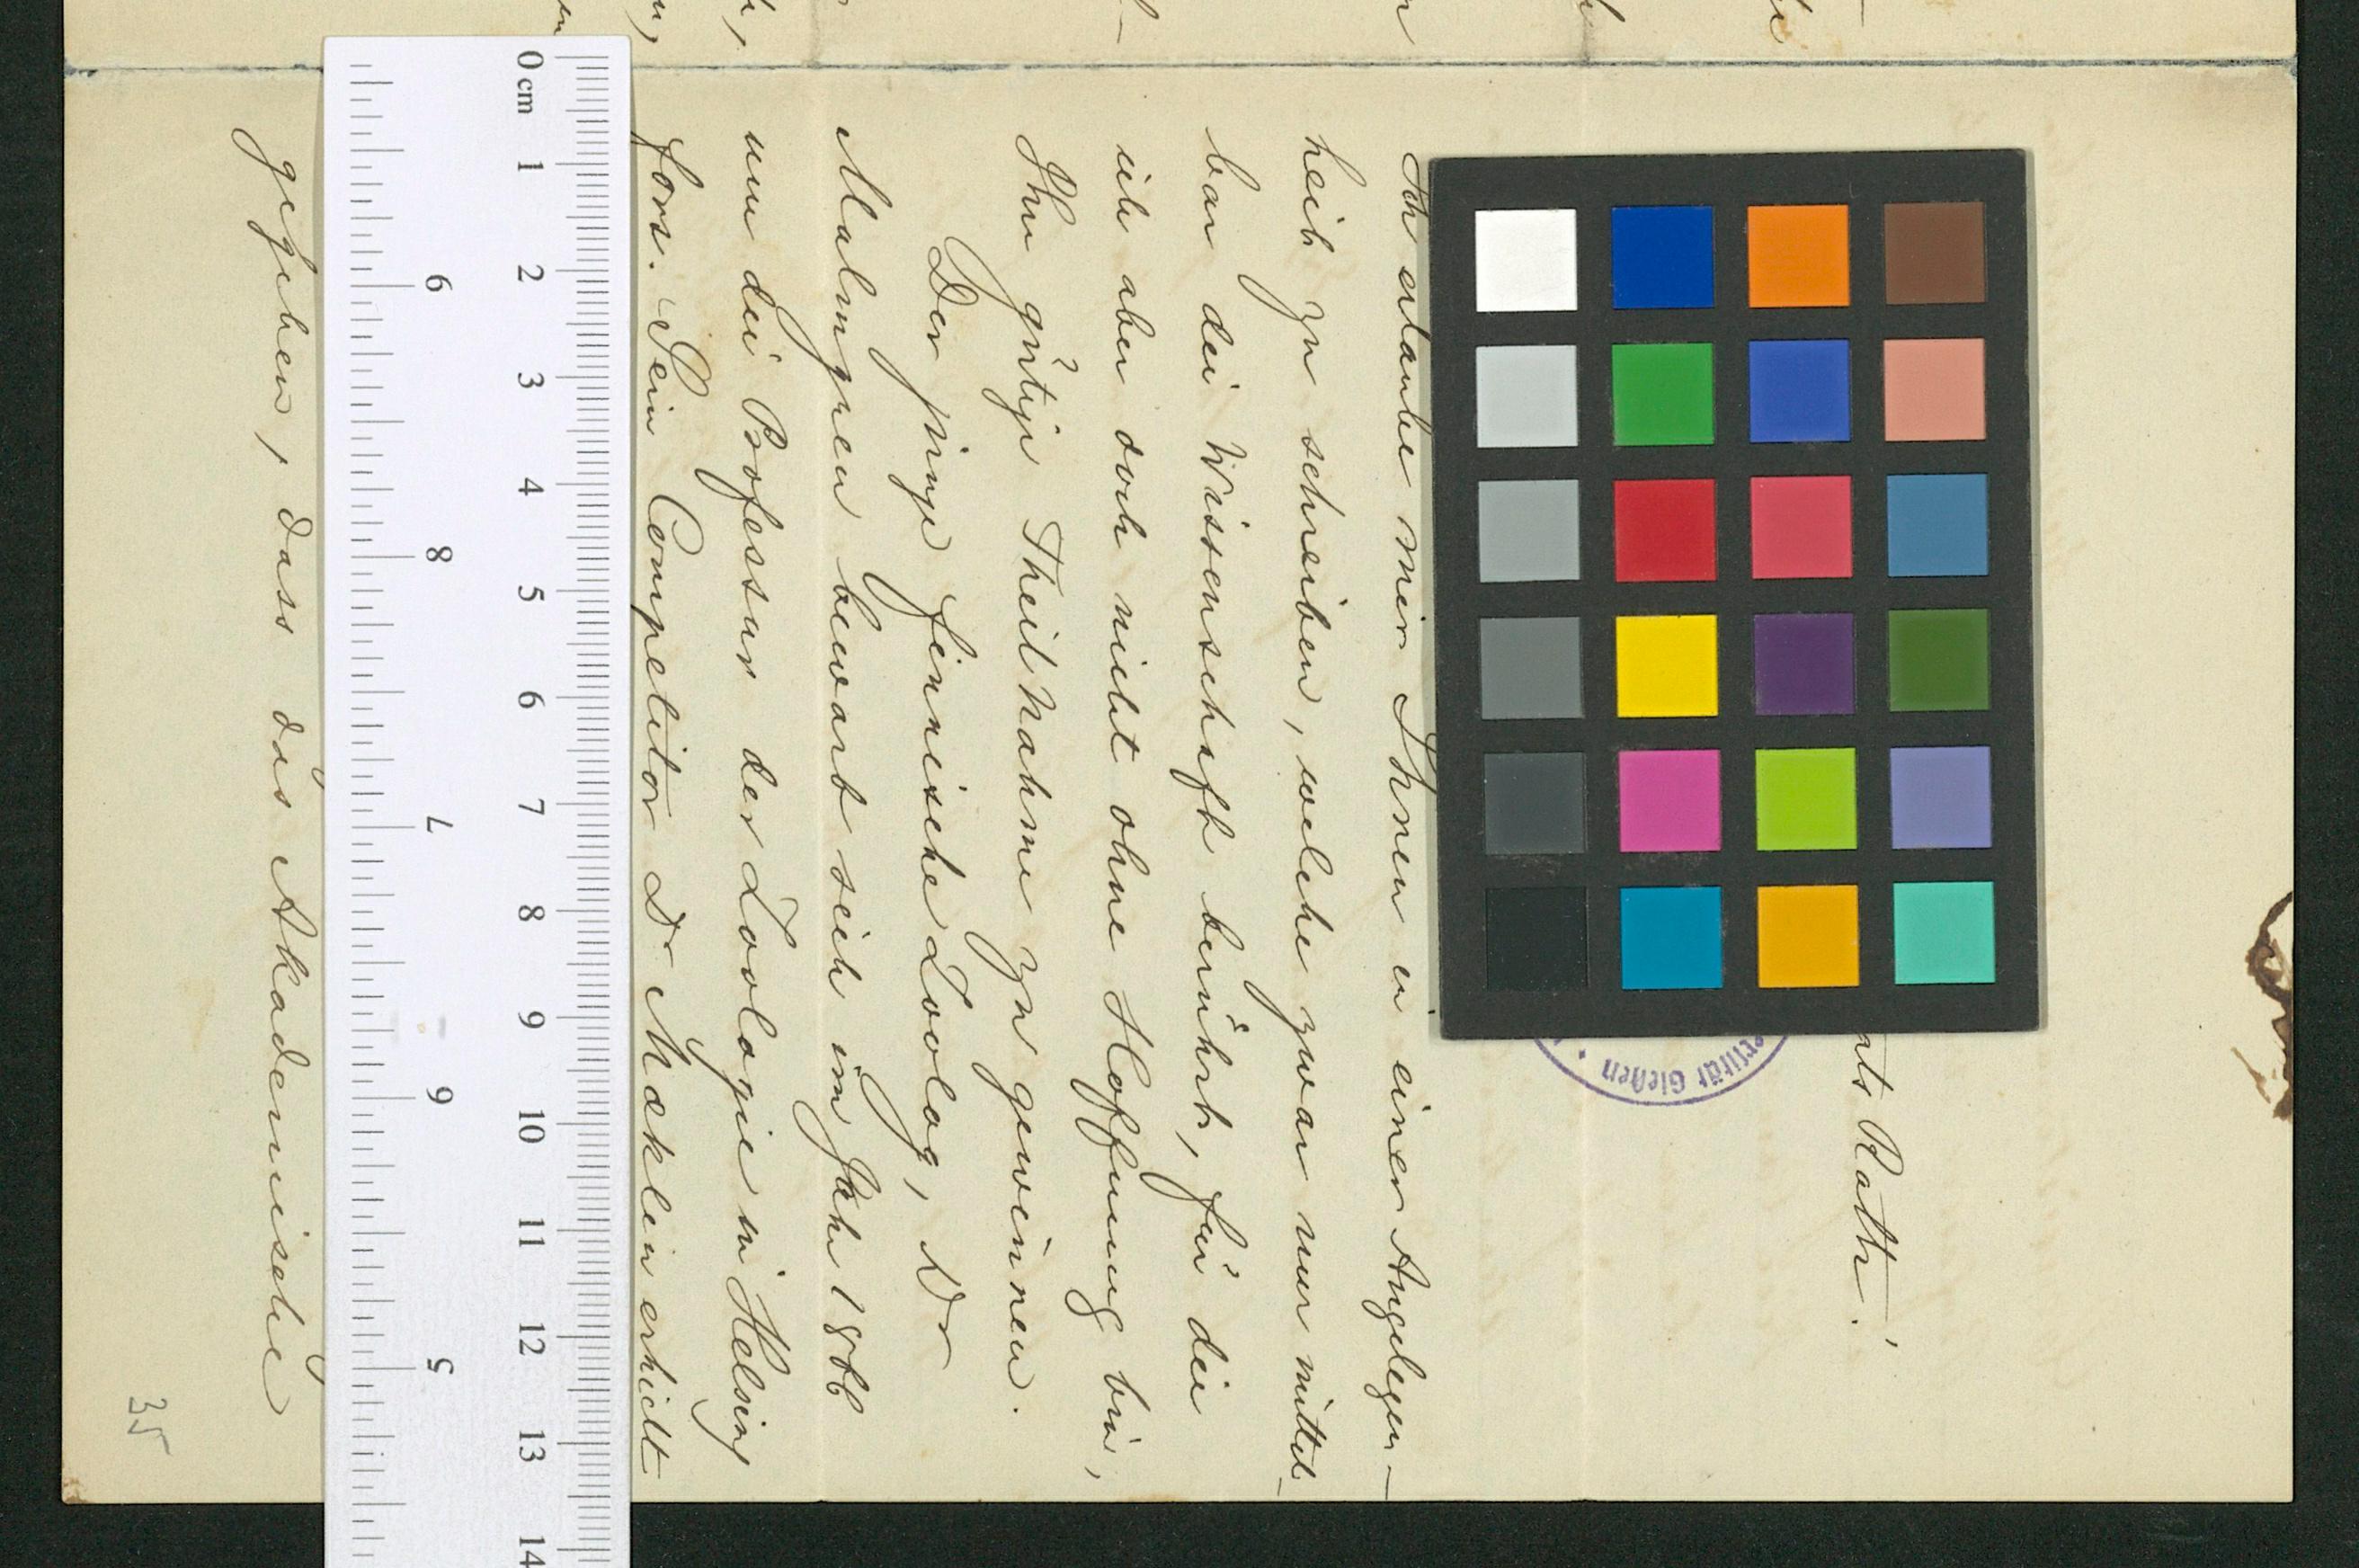 ats Rath!
ersität Gießen
Ich erlaube mir Ihnen in einer Angelegen-
heit zu schreiben, welche zwar nur mittel-
bar die Wissenschaft berührt, für die
ich aber doch nicht ohne Hoffnung bin,
Ihre gütige Theilnahme zu gewinnen.
Der junge finnische Zoolog, Dr
Malmgren bewarb sich im Jahr 186
um die Professur der Zoologie in Helsing
fors. Sein Competitor Dr Mäklin erhielt
gegeben, dass das Akademische
35
0 cm 1 2 3 4 5 6 7 8 9 10 11 12 13 14
9 8 7 6 5